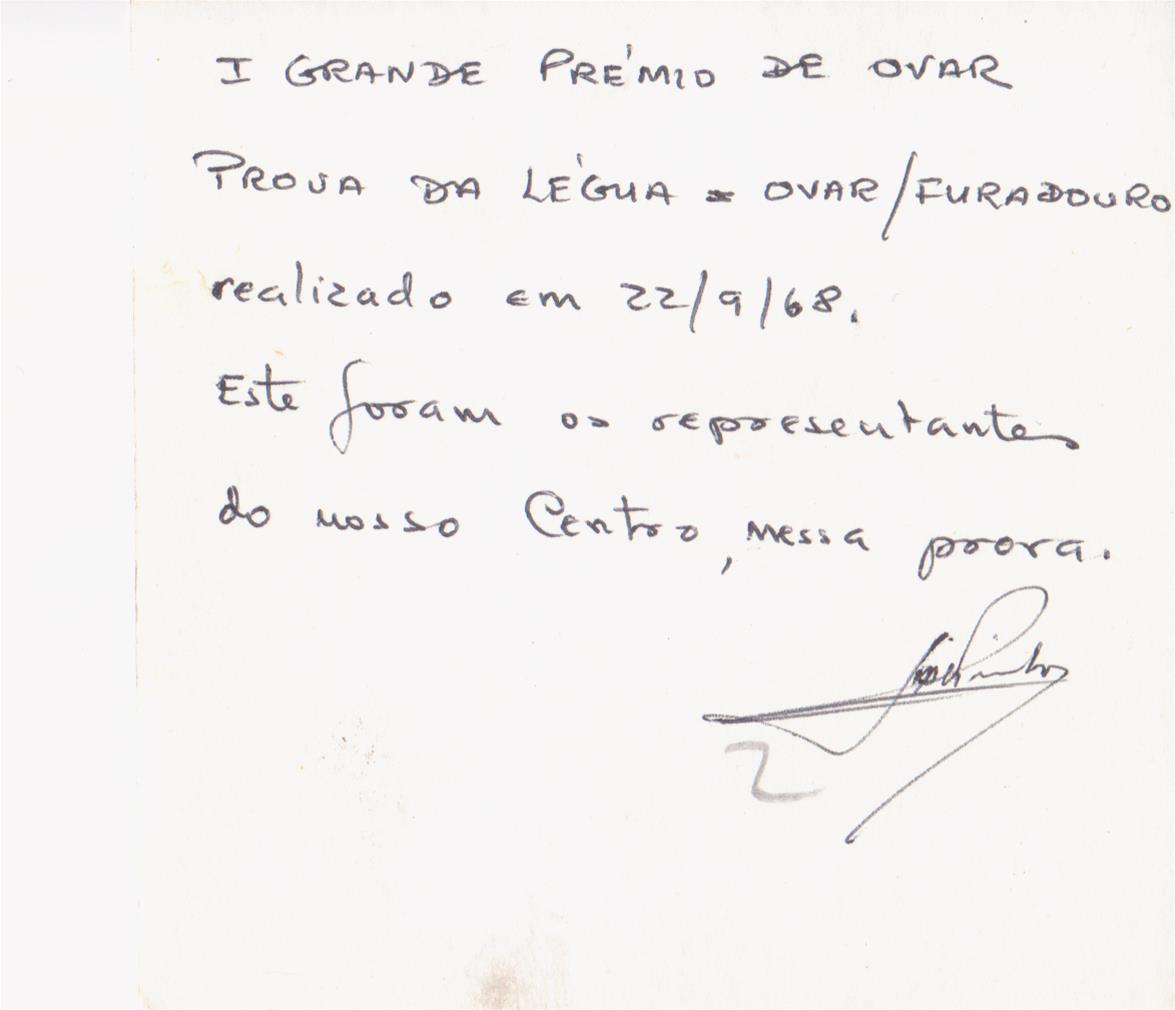 I GRANDE PRÉMIO DE OVAR
PROVA DA LÉGUA = OVAR/FURADOURO
realizado em 22/9/68.
Este foram os representantes
do nosso Centro, nessa prova.
2